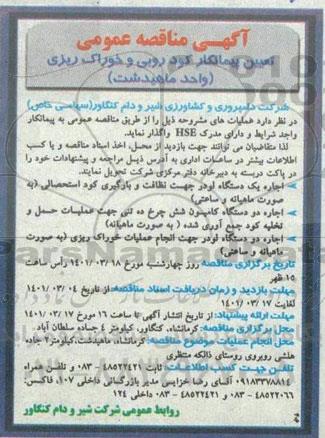 آگهـی مناقصه عمومی
تعیین پیمانکار کود روبی و خوراک ریزی
(واحد ماهیدشت)
شرکت دامپروری و کشاورزی شیر و دام کنگاور(سهامی خاص)
در نظر دارد عملیات های مشروحه ذیل را از طریق مناقصه عمومی به پیمانکار
واجد شرایط و دارای مدرک HSE واگذار نماید.
لذا متقاضیان می توانند جهت بازدید از محل، اخذ اسناد مناقصه و یا کسب
اطلاعات بیشتر در ساعات اداری به آدرس ذیـل مراجعه و پیشنهادات خود را
در پاکت دربسته به دبیرخانه دفتر مرکزی شرکت تحویل نمایند.
اجاره یک دستگاه لودر جهـت نظافت و بارگیری کود استحصالی (به
صورت ماهیانه و ساعتی)
اجاره دو دستگاه کامیـون شش چرخ ده تنی جهت عملیـات حمـل و
تخلیه کود جمع آوری شده ( به صورت ماهیانه)
اجاره دو دستگاه لودر جهت انجام عملیات خوراک ریزی (به صورت
ماهیانه و ساعتی)
تاریخ برگزاری مناقصه روز چهارشنبه مورخ ۱۴۰۱/۰۳/۱۸ رأس ساعت
۱۵ ظهر
مهلت بازدید و زمان دریافت اسناد مناقصه: از تاریخ ۱۴۰۱/۰۳/۰۴
لغایت ۱۴۰۱/۰۳/۱۷
مهلت ارائه پیشنهاد: از تاریخ انتشار آگهی تا ساعت ۱۶ مورخ ۱۴۰۱/۰۳/۱۷
محل برگزاری مناقصه: کرمانشاه، کنگاور، کیلومتر ۴ جـاده سلطان آباد
محل انجام عملیات موضوع مناقصه: کرمانشاه، ماهیدشت،کیلومتر۲ جاده
هلشی روبروی روستای ذالکه منتظری
تلفـن جهـت کسب اطلاعـات: ثابت ۴۸۵۲۲۴۲۱ - ۰۸۳ و تلفـن همراه
۰۹۱۸۳۳۷۸۸۱۴ آقـای رضا خزایـی مدیر بازرگانی داخلی ۱۰۷، فاکس:
۴۸۵۲۲۰۶۶ - ۰۸۳ و ۴۸۵۲۲۴۲۱ - ۰۸۳ داخلی ۱۲۴
روابط عمومی شرکت شیر و دام کنگاور